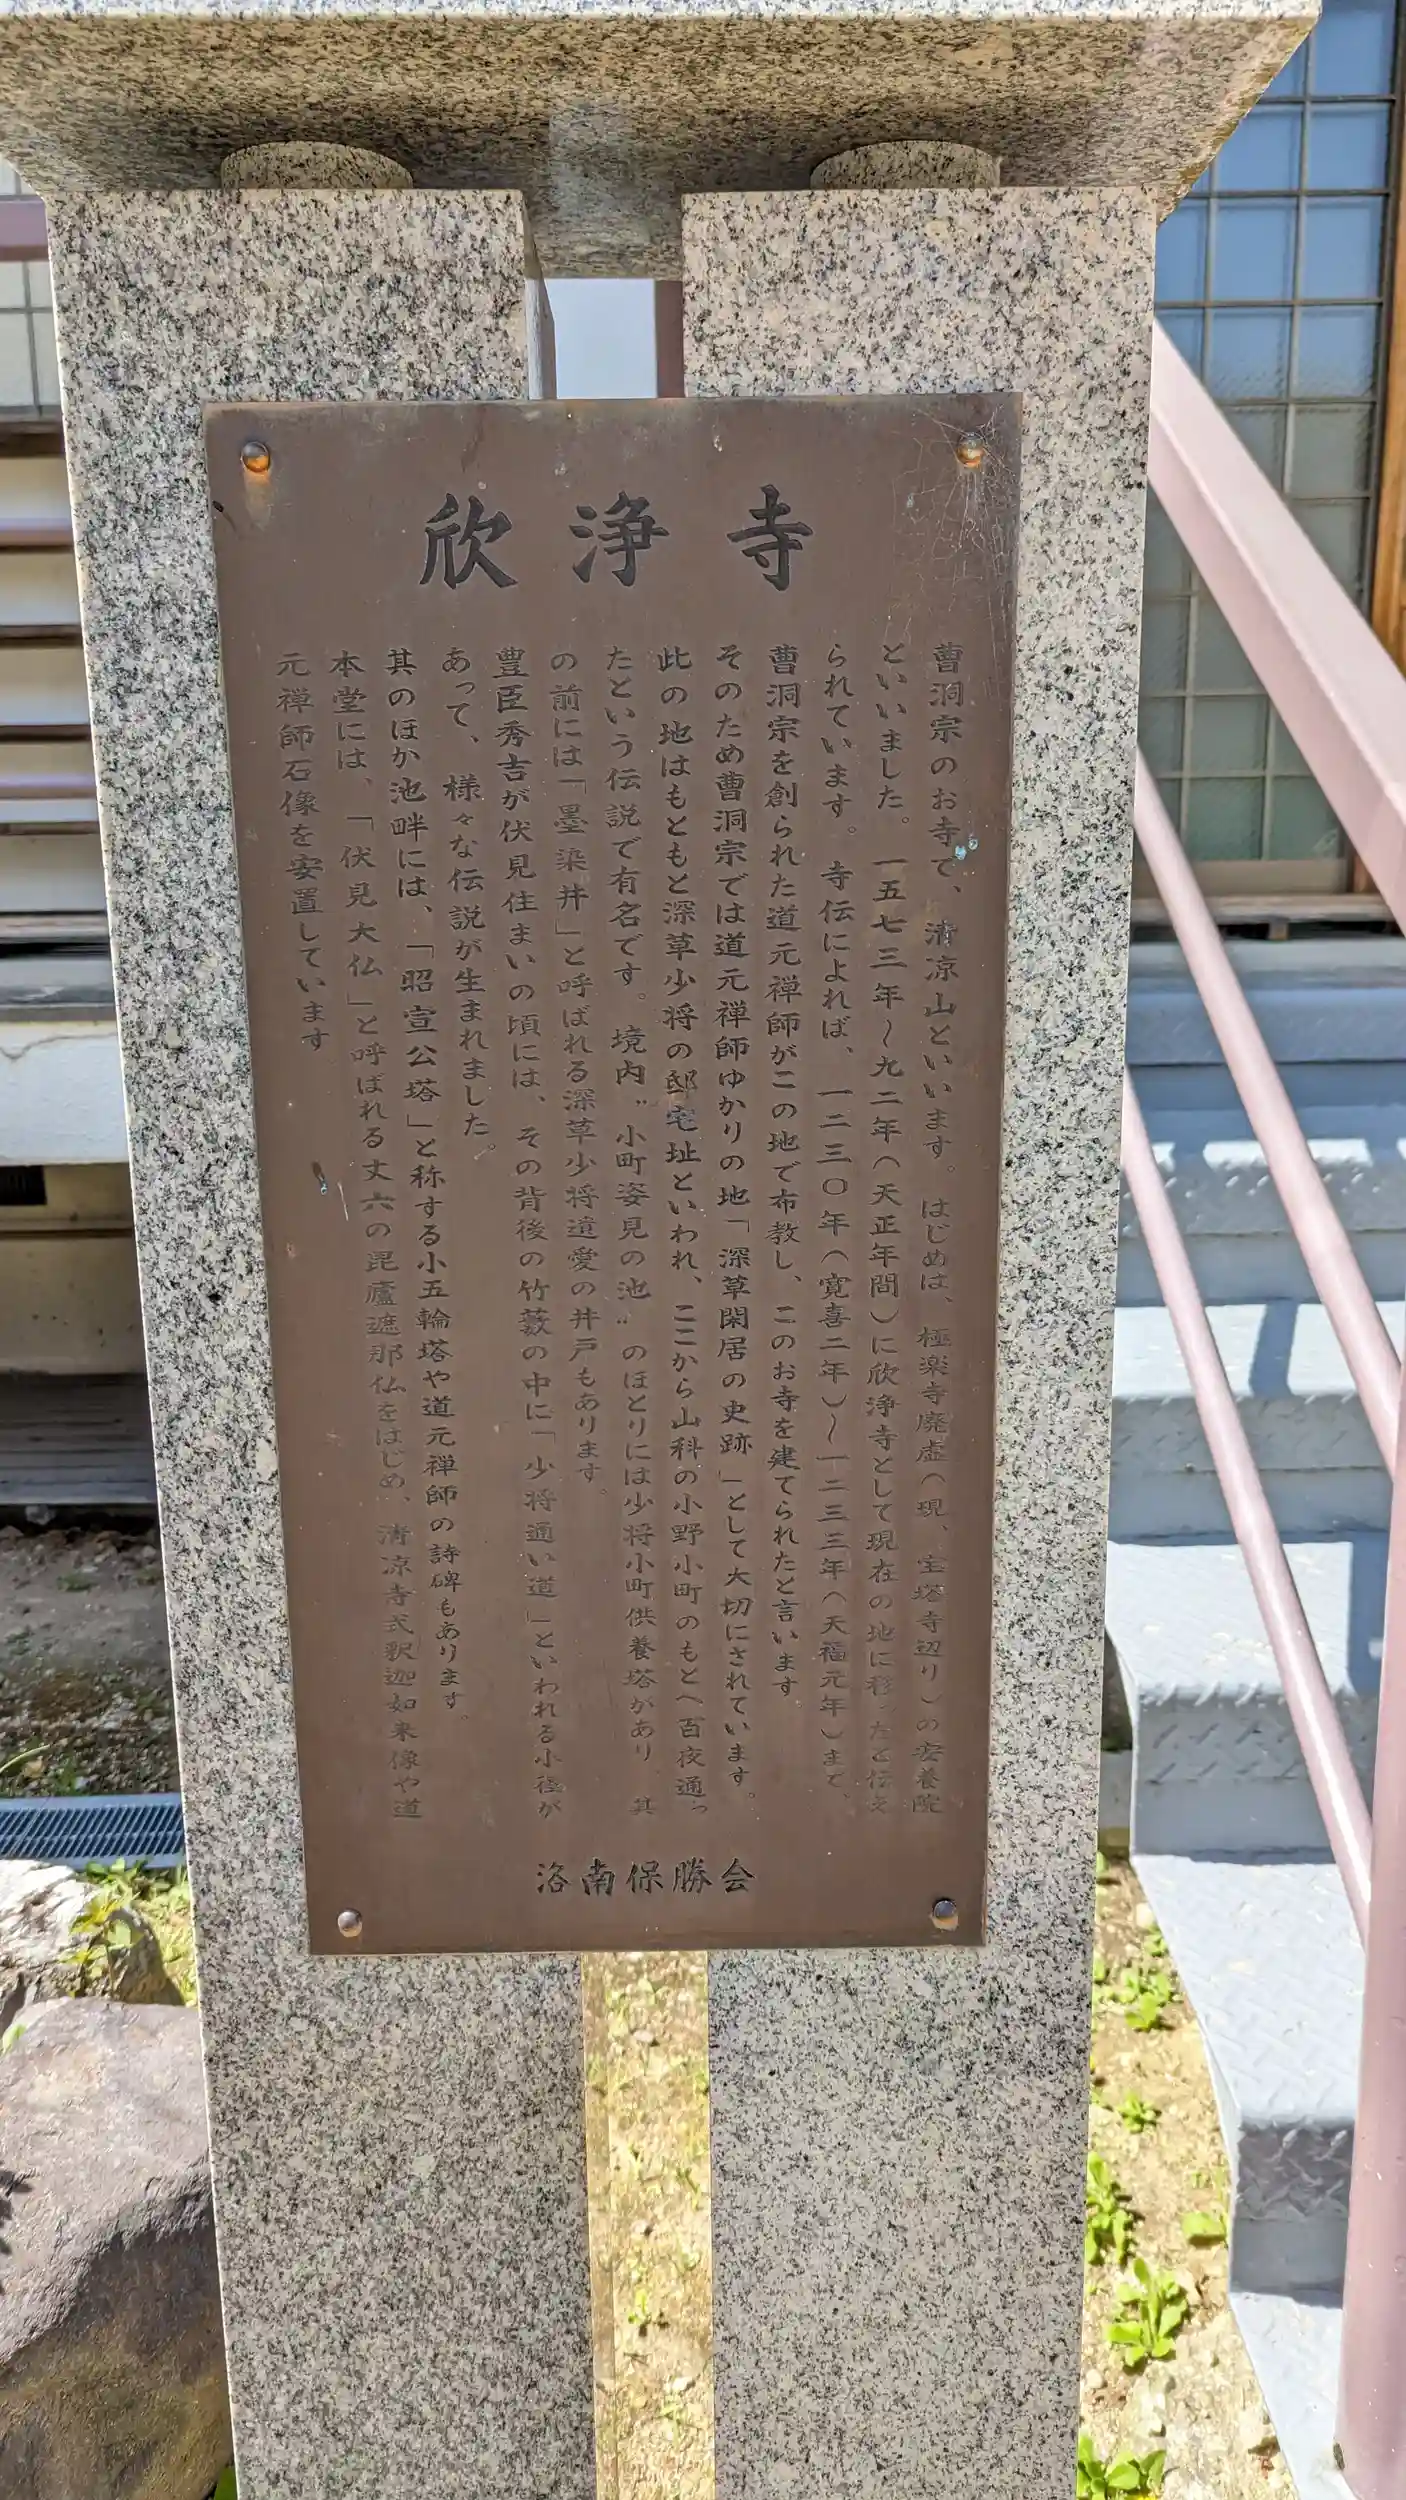 欣浄寺
曹洞宗のお寺で、清凉山といいます。はじめは、極楽寺廃虚（現、宝塔寺辺り）の安養院
といいました。一五七三年〜九二年（天正年間）に欣浄寺として現在の地に移ったと伝え
られています。寺伝によれば、一二三〇年（寛喜二年）〜一二三三年（天福元年）まで、
曹洞宗を創られた道元禅師がこの地で布教し、このお寺を建てられたと言います
そのため曹洞宗では道元禅師ゆかりの地「深草閑居の史跡」として大切にされています。
此の地はもともと深草少将の邸宅址といわれ、ここから山科の小野小町のもとへ百夜通っ
たという伝説で有名です。境内〝小町姿見の池〟のほとりには少将小町供養塔があり、其
の前には「墨染井」と呼ばれる深草少将遺愛の井戸もあります。
豊臣秀吉が伏見住まいの頃には、その背後の竹藪の中に「少将通い道」といわれる小径が
あって、様々な伝説が生まれました。
其のほか池畔には、「昭宣公塔」と称する小五輪塔や道元禅師の詩碑もあります。
本堂には、「伏見大仏」と呼ばれる丈六の毘廬遮那仏をはじめ、清凉寺式釈迦如来像や道
元禅師石像を安置しています
洛南保勝会